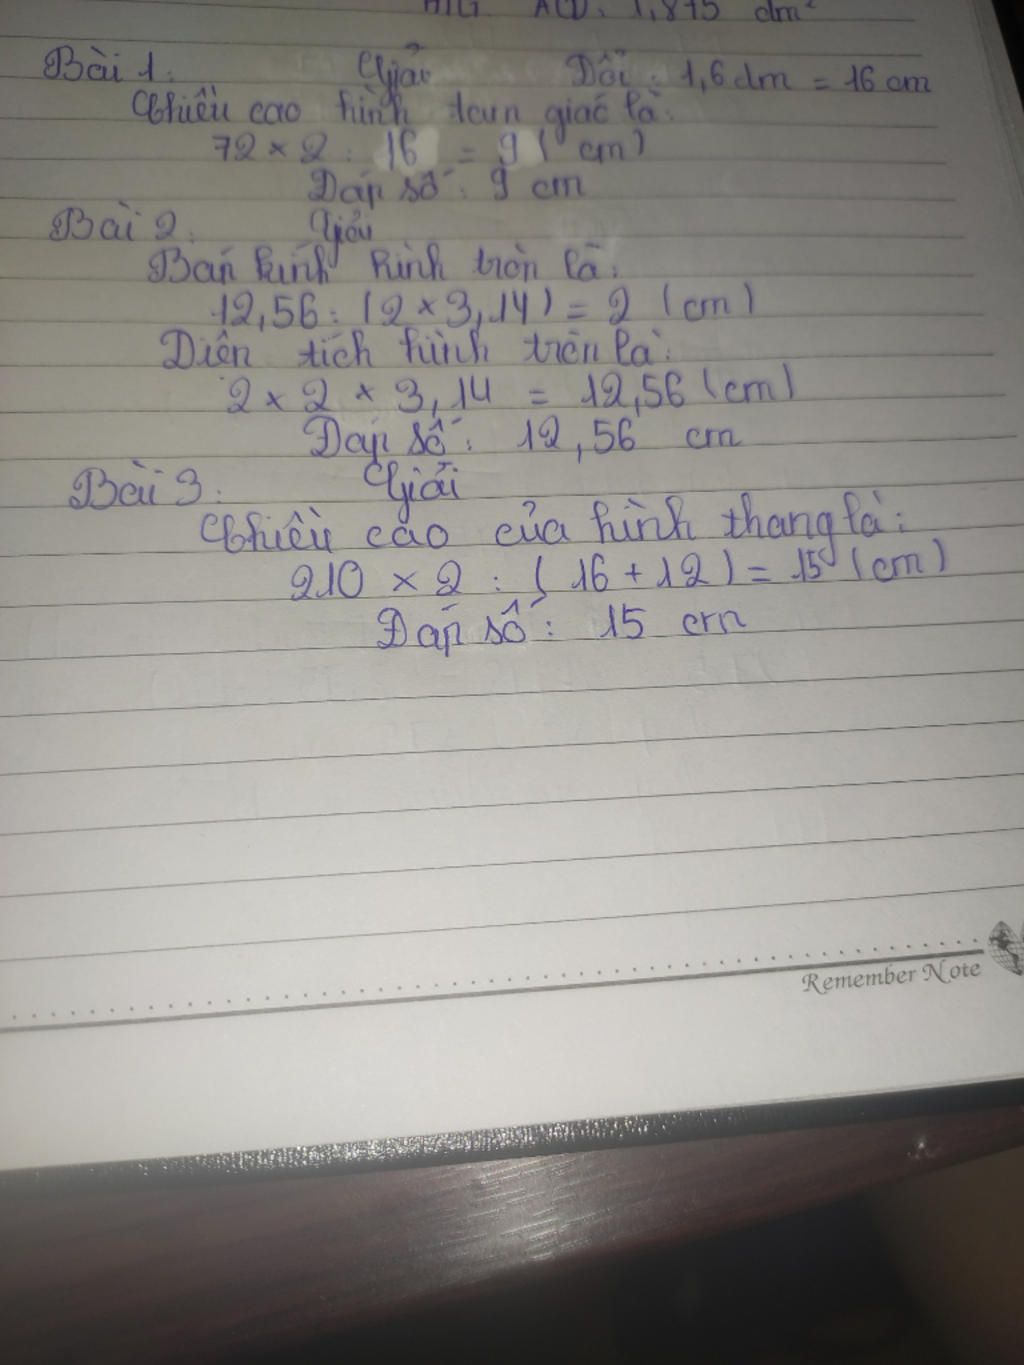 HTG ACD: 1,875 dm²
Bài 1: Giải Đổi: 1,6 dm = 16 cm
Chiều cao hình tam giác là:
72 × 2 : 16 = 9 ( cm)
Đáp số: 9 cm
Bài 2: Giải
Bán kính hình tròn là:
12,56 : (2 × 3,14) = 2 (cm)
Diện tích hình tròn là:
2 × 2 × 3,14 = 12,56 (cm)
Đáp số: 12,56 cm
Bài 3: Giải
Chiều cao của hình thang là:
210 × 2 : ( 16 + 12) = 15 (cm)
Đáp số: 15 cm
Remember Note